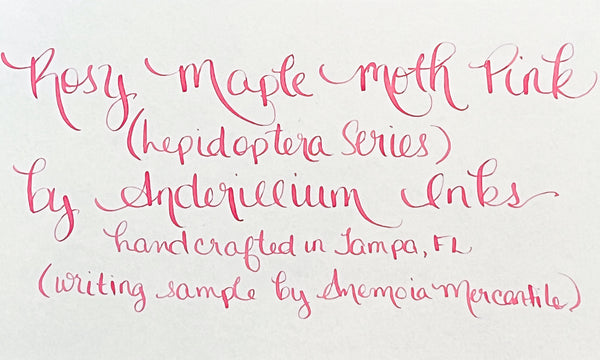 Rosy Maple Moth Pink
(Lepidoptera Series)
by Anderillium Inks
handcrafted in Tampa, FL
(writing sample by Anemoia Mercantile)